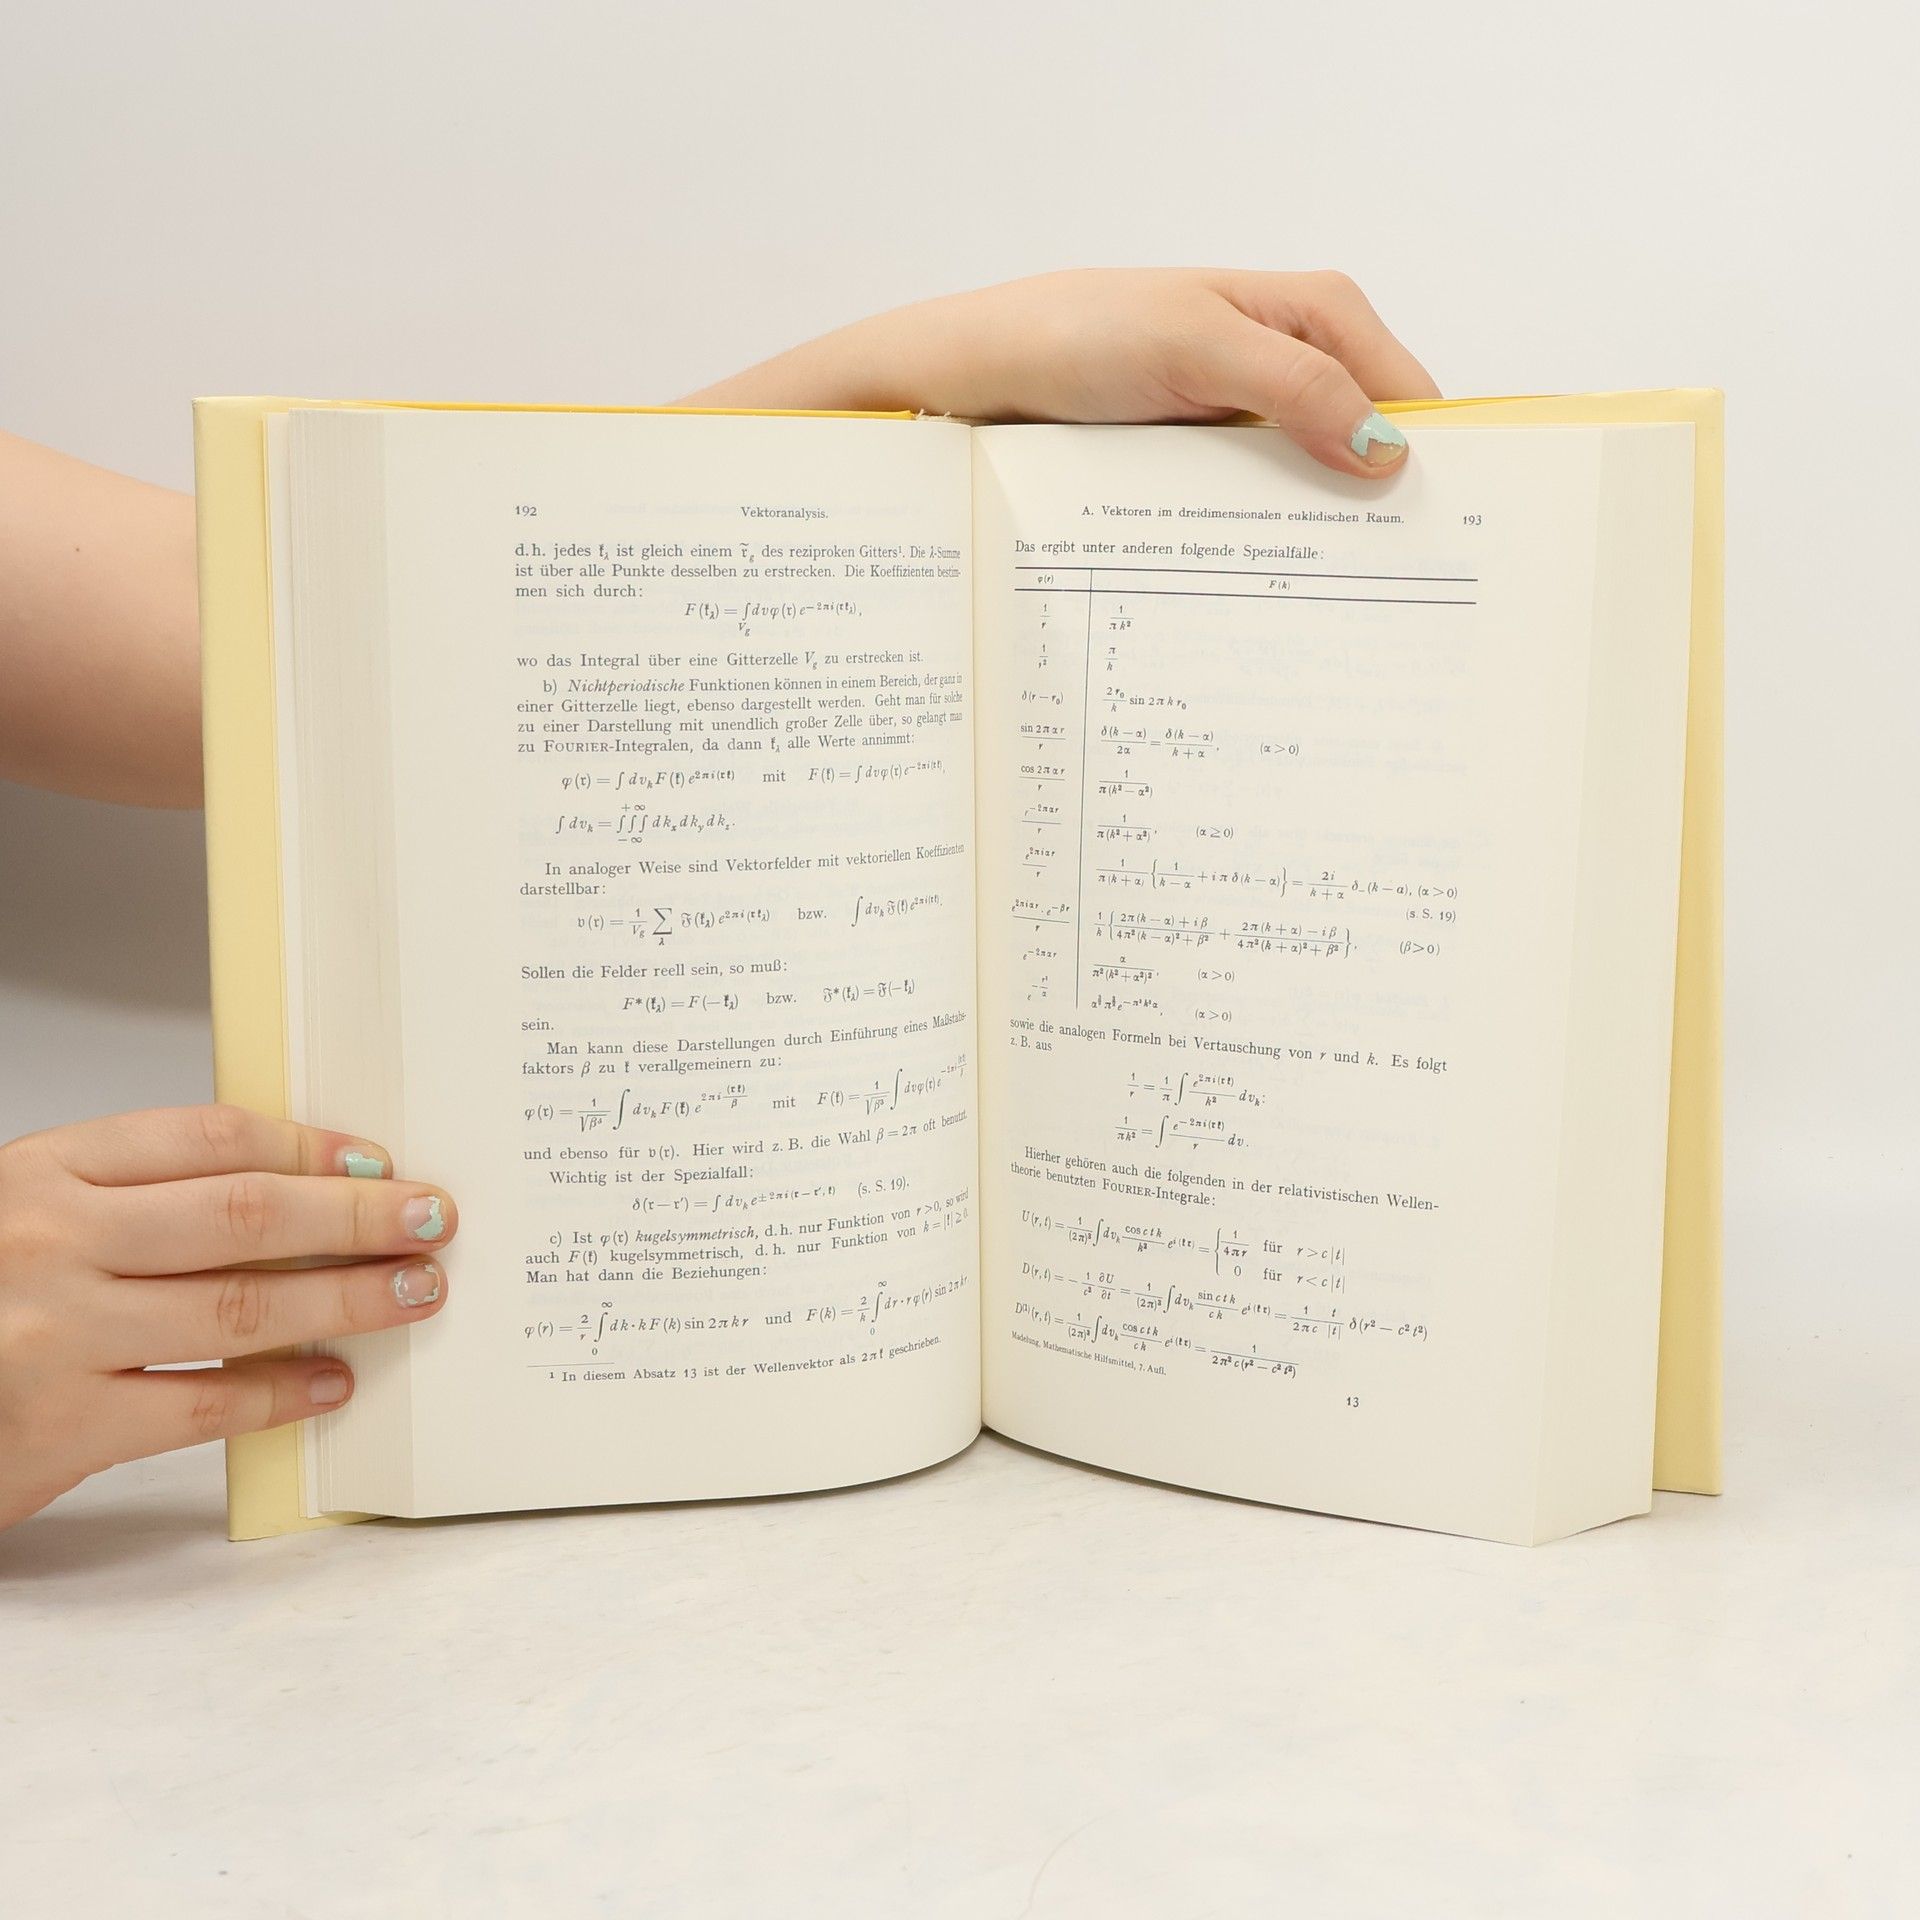 192 Vektoranalysis.
d. h. jedes 𝔨_λ ist gleich einem 𝔯̃_g des reziproken Gitters¹. Die λ-Summe
ist über alle Punkte desselben zu erstrecken. Die Koeffizienten bestim-
men sich durch:
F(𝔨_λ) = ∫_{V_g} dv φ(𝔯) e^{−2πi(𝔯𝔨_λ)},
wo das Integral über eine Gitterzelle V_g zu erstrecken ist.
b) Nichtperiodische Funktionen können in einem Bereich, der ganz in
einer Gitterzelle liegt, ebenso dargestellt werden. Geht man für solche
zu einer Darstellung mit unendlich großer Zelle über, so gelangt man
zu FOURIER-Integralen, da dann 𝔨_λ alle Werte annimmt:
φ(𝔯) = ∫ dv_k F(𝔨) e^{2πi(𝔯𝔨)} mit F(𝔨) = ∫ dv φ(𝔯) e^{−2πi(𝔯𝔨)},
∫ dv_k = ∫∫∫_{−∞}^{+∞} dk_x dk_y dk_z.
In analoger Weise sind Vektorfelder mit vektoriellen Koeffizienten
darstellbar:
𝔳(𝔯) = 1/V_g ∑_λ 𝔉(𝔨_λ) e^{2πi(𝔯𝔨_λ)} bzw. ∫ dv_k 𝔉(𝔨) e^{2πi(𝔯𝔨)}.
Sollen die Felder reell sein, so muß:
F*(𝔨_λ) = F(−𝔨_λ) bzw. 𝔉*(𝔨_λ) = 𝔉(−𝔨_λ)
sein.
Man kann diese Darstellungen durch Einführung eines Maßstabs-
faktors β zu 𝔨 verallgemeinern zu:
φ(𝔯) = 1/√β³ ∫ dv_k F(𝔨) e^{2πi (𝔯𝔨)/β} mit F(𝔨) = 1/√β³ ∫ dv φ(𝔯) e^{−2πi (𝔯𝔨)/β}
und ebenso für 𝔳(𝔯). Hier wird z. B. die Wahl β = 2π oft benutzt.
Wichtig ist der Spezialfall:
δ(𝔯−𝔯′) = ∫ dv_k e^{±2πi(𝔯−𝔯′, 𝔨)} (s. S. 19).
c) Ist φ(𝔯) kugelsymmetrisch, d. h. nur Funktion von r > 0, so wird
auch F(𝔨) kugelsymmetrisch, d. h. nur Funktion von k = |𝔨| ≥ 0.
Man hat dann die Beziehungen:
φ(r) = 2/r ∫_0^∞ dk · k F(k) sin 2πkr und F(k) = 2/k ∫_0^∞ dr · r φ(r) sin 2πkr
¹ In diesem Absatz 13 ist der Wellenvektor als 2π𝔨 geschrieben.
A. Vektoren im dreidimensionalen euklidischen Raum. 193
Das ergibt unter anderen folgende Spezialfälle:
φ(r) F(k)
1/r 1/(πk²)
1/r² π/k
δ(r − r₀) 2r₀/k sin 2πkr₀
sin 2παr / r δ(k−α)/2α = δ(k−α)/(k+α), (α > 0)
cos 2παr / r 1/(π(k²−α²))
e^{−2παr}/r 1/(π(k²+α²)), (α ≥ 0)
e^{2πiαr}/r 1/(π(k+α)) {1/(k−α) + iπδ(k−α)} = 2i/(k+α) δ₋(k−α), (α > 0)
(s. S. 19)
e^{2πiαr} · e^{−βr}/r 1/k {(2π(k−α)+iβ)/(4π²(k−α)²+β²) + (2π(k+α)−iβ)/(4π²(k+α)²+β²)}, (β > 0)
e^{−2παr} α/(π²(k²+α²)²), (α > 0)
e^{−r²/α} α^{3/2} π^{3/2} e^{−π²k²α}, (α > 0)
sowie die analogen Formeln bei Vertauschung von r und k. Es folgt
z. B. aus
1/r = 1/π ∫ e^{2πi(𝔯𝔨)}/k² dv_k:
1/(πk²) = ∫ e^{−2πi(𝔯𝔨)}/r dv.
Hierher gehören auch die folgenden in der relativistischen Wellen-
theorie benutzten FOURIER-Integrale:
U(r,t) = 1/(2π)³ ∫ dv_k cos ctk/k² e^{i(𝔨𝔯)} = { 1/(4πr) für r > c|t|
0 für r < c|t|
D(r,t) = −1/c² ∂U/∂t = 1/(2π)³ ∫ dv_k sin ctk/ck e^{i(𝔨𝔯)} = 1/(2πc) t/|t| δ(r² − c²t²)
D⁽¹⁾(r,t) = 1/(2π)³ ∫ dv_k cos ctk/ck e^{i(𝔨𝔯)} = 1/(2π²c(r² − c²t²))
Madelung, Mathematische Hilfsmittel, 7. Aufl.
13